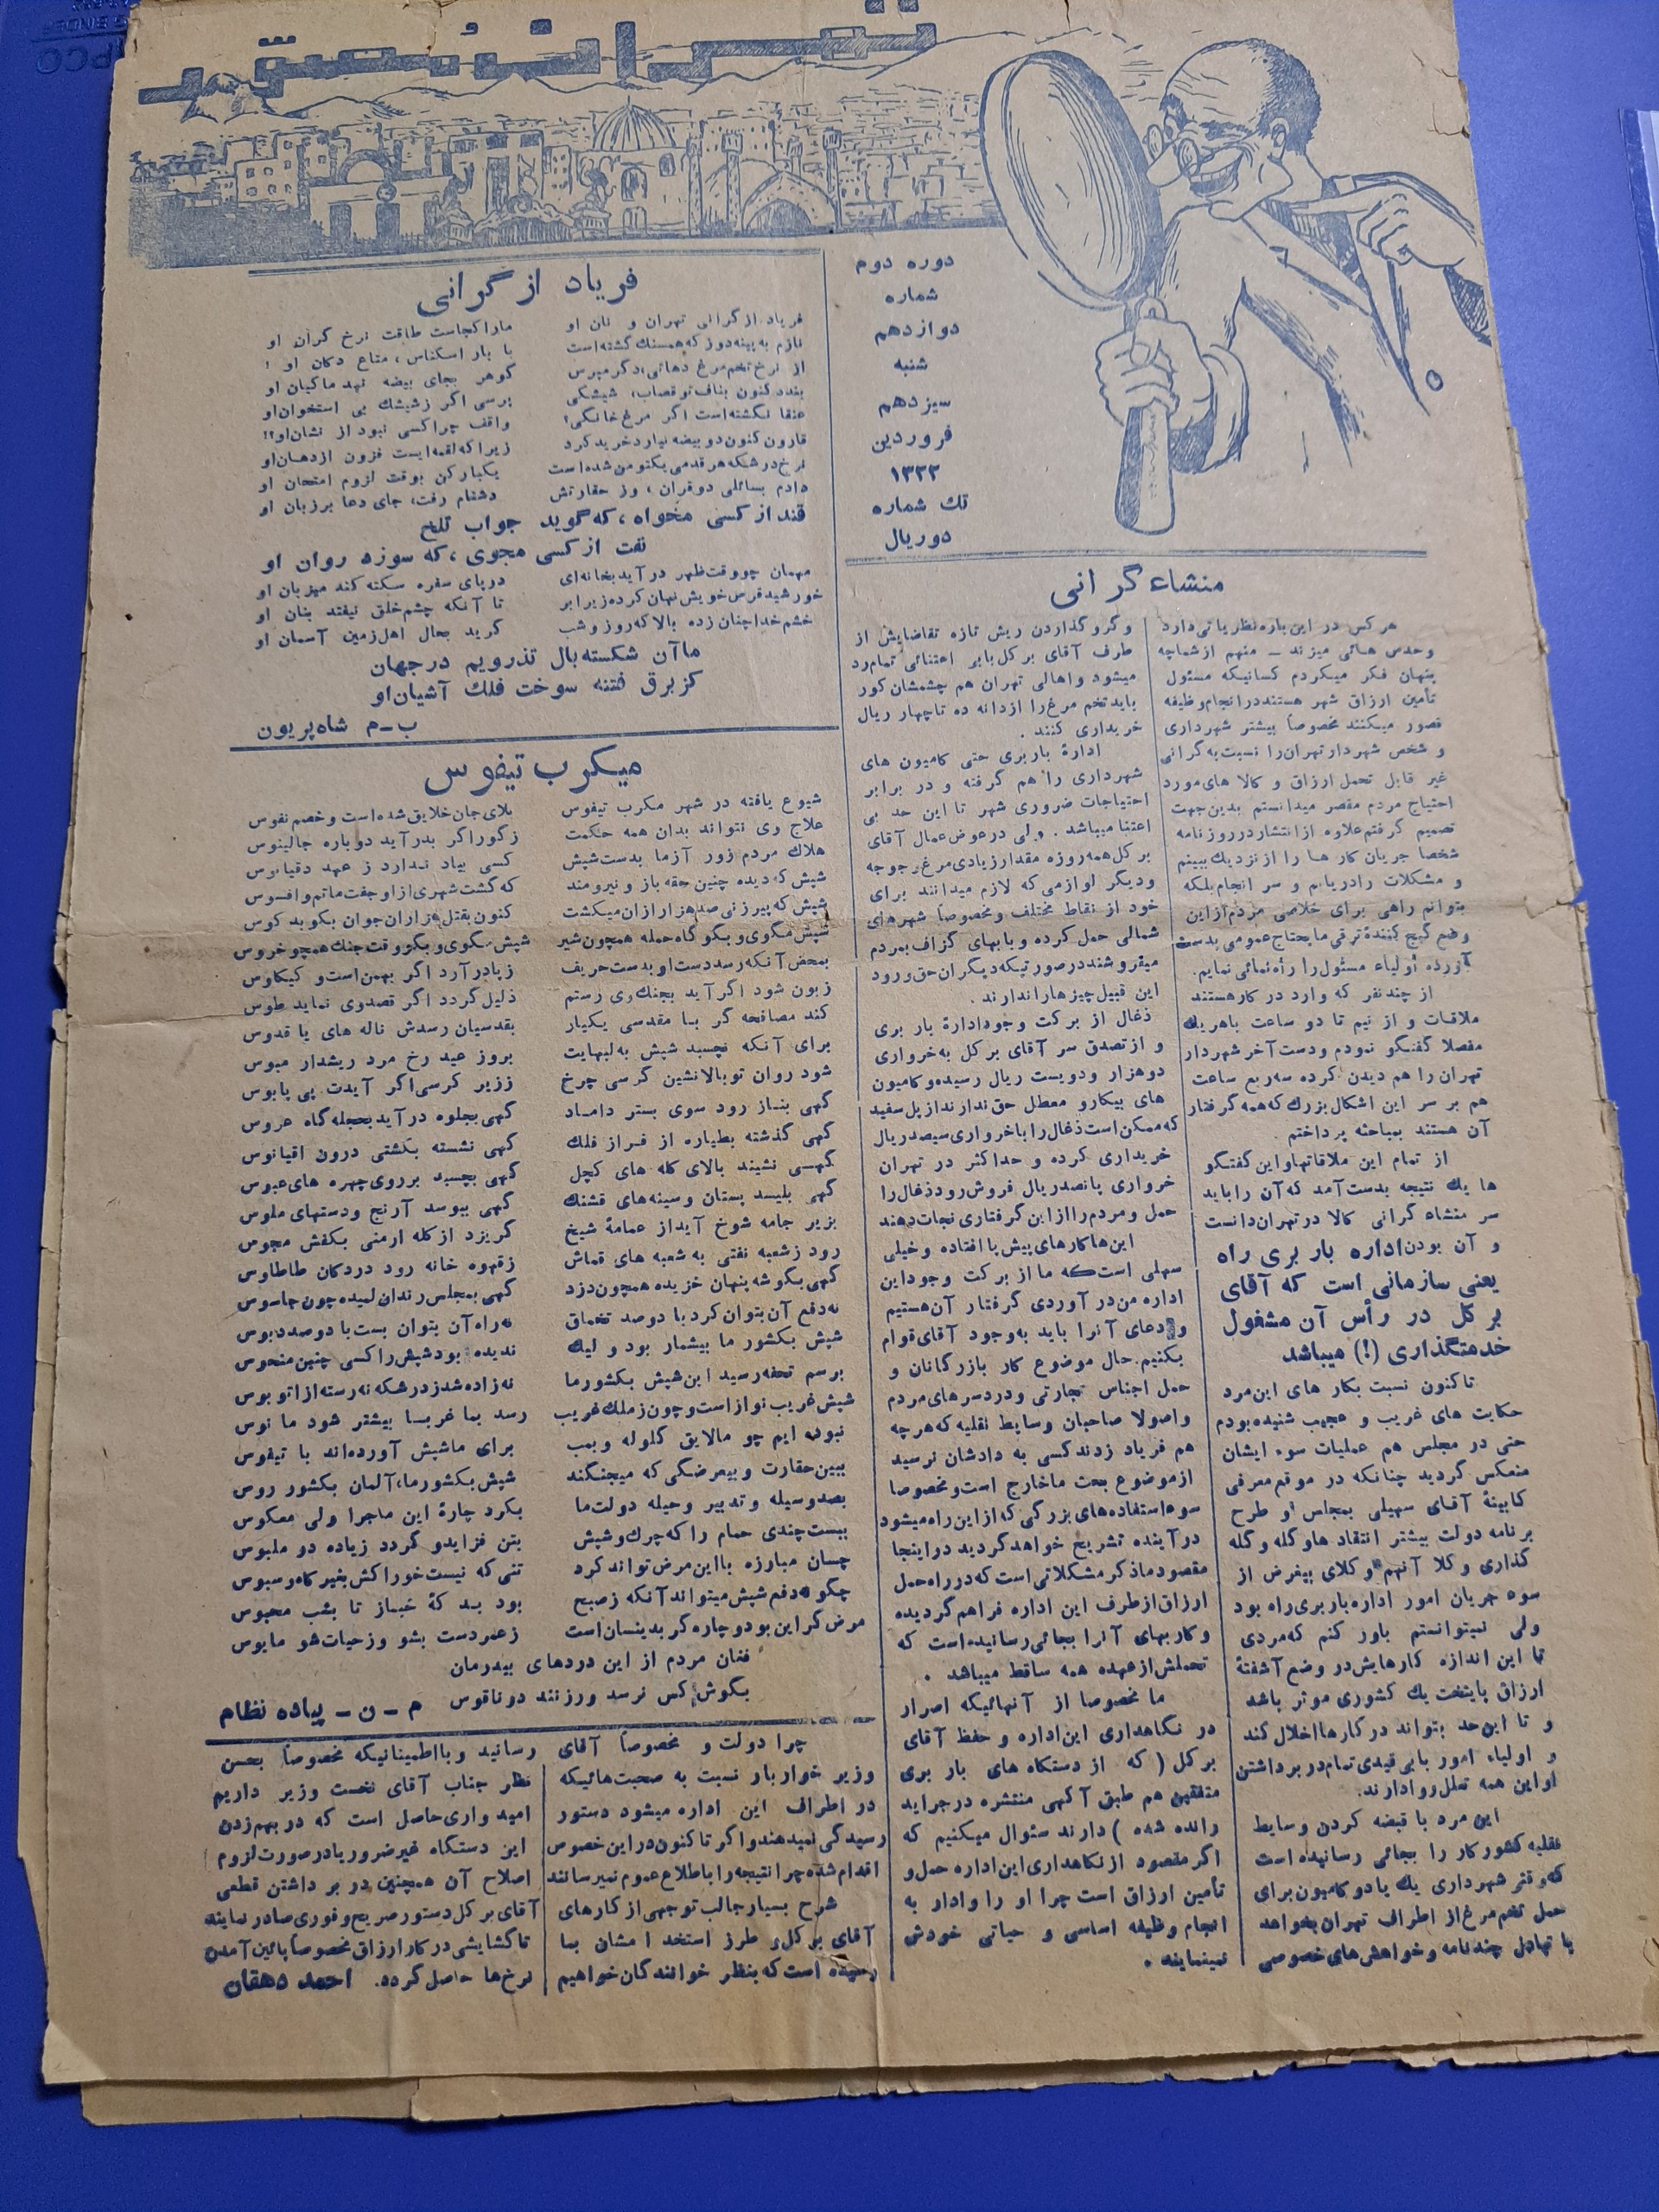 تهران مصور
دوره دوم
شماره
دوازدهم
شنبه
سیزدهم
فروردین
۱۳۲۲
تك شماره
دو ریال
منشاء گرانی
هر کس در این باره نظریاتی دارد
وحدس هائی میزند _ منهم از شما چه
پنهان فکر میکردم کسانیکه مسئول
تأمین ارزاق شهر هستند در انجام وظیفه
قصور میکنند مخصوصاً بیشتر شهرداری
و شخص شهردار تهران را نسبت به گرانی
غیر قابل تحمل ارزاق و کالا های مورد
احتیاج مردم مقصر میدانستم بدین جهت
تصمیم گرفتم علاوه از انتشار در روزنامه
شخصا جریان کار ها را از نزدیك ببینم
و مشکلات را دریابم و سر انجام بلکه
بتوانم راهی برای خلاصی مردم از این
وضع گیج کنندهٔ ترقی مایحتاج عمومی بدست
آورده أولیاء مسئول را راه نمائی نمایم.
از چند نفر که وارد در کار هستند
ملاقات و از نیم تا دو ساعت باهر یك
مفصلا گفتگو نمودم و دست آخر شهردار
تهران را هم دیدن کرده سه ربع ساعت
هم بر سر این اشکال بزرك که همه گرفتار
آن هستند بمباحثه پرداختم .
از تمام این ملاقاتها و این گفتگو
ها یك نتیجه بدست آمد که آن را باید
سر منشاء گرانی کالا در تهران دانست
و آن بودن اداره بار بری راه
یعنی سازمانی است که آقای
بر کل در رأس آن مشغول
خدمتگذاری (!) میباشد
تاکنون نسبت بکار های این مرد
حکایت های غریب و عجیب شنیده بودم
حتی در مجلس هم عملیات سوء ایشان
منعکس گردید چنانکه در موقع معرفی
کابینهٔ آقای سهیلی بمجلس و طرح
برنامه دولت بیشتر انتقاد ها و گله و گله
گذاری وکلا آنهم وکلای بیغرض از
سوء جریان امور اداره باربری راه بود
ولی نمیتوانستم باور کنم که مردی
تا این اندازه کارهایش در وضع آشفتهٔ
ارزاق پایتخت یك کشوری موثر باشد
و تا این حد بتواند در کارها اخلال کند
و اولیاء امور با بی قیدی تمام در برداشتن
او این همه تعلل روا دارند.
این مرد با قبضه کردن وسایط
نقلیه کشور کار را بجائی رسانیده است
که وقتی شهرداری یك یا دو کامیون برای
حمل تخم مرغ از اطراف تهران بخواهد
با تبادل چند نامه و خواهش های خصوصی
و گرو گذاردن ریش تازه تقاضایش از
طرف آقای بر کل بابی اعتنائی تمام رد
میشود و اهالی تهران هم چشمشان کور
باید تخم مرغ را از دانه ده تا چهار ریال
خریداری کنند .
ادارهٔ باربری حتی کامیون های
شهرداری را هم گرفته و در برابر
احتیاجات ضروری شهر تا این حد بی
اعتنا میباشد . ولی در عوض عمال آقای
بر کل همه روزه مقدار زیادی مرغ و جوجه
و دیگر لوازمی که لازم میدانند برای
خود از نقاط مختلف و مخصوصاً شهرهای
شمالی حمل کرده و با بهای گزاف بمردم
میفروشند در صورتیکه دیگران حق ورود
این قبیل چیزها را ندارند .
ذغال از برکت وجود ادارهٔ بار بری
و از تصدق سر آقای بر کل به خرواری
دو هزار و دویست ریال رسیده و کامیون
های بیکار و معطل حق ندارند از پل سفید
که ممکن است ذغال را با خرواری سیصد ریال
خریداری کرده و حداکثر در تهران
خرواری پانصد ریال فروش رود ذغال را
حمل و مردم را از این گرفتاری نجات دهند
این ها کارهای پیش پا افتاده و خیلی
سهلی است که ما از برکت وجود این
اداره من در آوردی گرفتار آن هستیم
و دعای آنرا باید به وجود آقای قوام
بکنیم. حال موضوع کار بازرگانان و
حمل اجناس تجارتی و دردسر های مردم
و اصولا صاحبان وسایط نقلیه که هر چه
هم فریاد زدند کسی به دادشان نرسید
از موضوع بحث ما خارج است و مخصوصا
سوء استفاده های بزرگی که از این راه میشود
در آینده تشریح خواهد گردید در اینجا
مقصود ما ذکر مشکلاتی است که در راه حمل
ارزاق از طرف این اداره فراهم گردیده
و کار بهای آنرا بجائی رسانیده است که
تحملش از عهده همه ساقط میباشد .
ما مخصوصا از آنهائیکه اصرار
در نگاهداری این اداره و حفظ آقای
بر کل ( که از دستگاه های بار بری
متفقین هم طبق آگهی منتشره در جراید
رانده شده ) دارند سئوال میکنیم که
اگر مقصود از نگاهداری این اداره حمل و
تأمین ارزاق است چرا او را وادار به
انجام وظیفه اساسی و حیاتی خودش
نمینمایند .
فریاد از گرانی
فریاد از گرانی تهران و نان او
ما را کجاست طاقت نرخ گران او
نازم به پینه دوز که همسنك گشته است
با بار اسکناس، متاع دکان او !
از نرخ تخم مرغ دهاتی، دگر مپرس
گوهر بجای بیضه نهد ماکیان او
بندد کنون بناف تو قصاب، شیشکی
پرسی اگر ز شیشك بی استخوان او
عنقا نگشته است اگر مرغ خانگی؟
واقف چرا کسی نبود از نشان او؟!
قارون کنون دو بیضه نیارد خرید کرد
زیرا که لقمه ایست فزون از دهان او
نرخ درشکه هر قدمی یکتومن شده است
یکبار کن بوقت لزوم امتحان او
دادم بسائلی دو قران، وز حقارتش
دشنام رفت، جای دعا بر زبان او
قند از کسی مخواه، که گوید جواب تلخ
نفت از کسی مجوی، که سوزد روان او
مهمان چو وقت ظهر در آید بخانه ای
در پای سفره سکته کند میزبان او
خورشید قرص خویش نهان کرده زیر ابر
تا آنکه چشم خلق نیفتد بنان او
خشم خدا چنان زده بالا که روز و شب
گرید بحال اهل زمین آسمان او
ما آن شکسته بال تذرویم در جهان
کز برق فتنه سوخت فلك آشیان او
ب_م شاه پریون
میکرب تیفوس
شیوع یافته در شهر مکرب تیفوس
بلای جان خلایق شده است و خصم نفوس
علاج وی نتواند بدان همه حکمت
ز گور اگر بدر آید دوباره جالینوس
هلاك مردم زور آزما بدست شپش
کسی بیاد ندارد ز عهد دقیانوس
شپش که دیده چنین حقه باز و نیرومند
که گشت شهری از او جفت ماتم و افسوس
شپش که پیر زنی صد هزار از ان میکشت
کنون بقتل هزاران جوان بکوبد کوس
شپش مگوی و بگو گاه حمله همچون شیر
شپش مگوی و بگو وقت جنك همچو خروس
بمحض آنکه رسد دست او بدست حریف
ز پا در آرد اگر بهمن است و کیکاوس
زبون شود اگر آید بجنك وی رستم
ذلیل گردد اگر قصد وی نماید طوس
کند مصافحه گر با مقدسی یکبار
بقدسیان رسدش ناله های یا قدوس
برای آنکه نچسبد شپش به لبهایت
بروز عید رخ مرد ریشدار مبوس
شود روان تو بالا نشین کرسی چرخ
ززیر کرسی اگر آیدت پی پابوس
گهی بناز رود سوی بستر داماد
گهی بجلوه در آید بحجله گاه عروس
گهی گذشته بطیاره از فراز فلك
گهی نشسته بکشتی درون اقیانوس
گهی نشیند بالای کله های کچل
گهی بچسبد بر روی چهره های عبوس
گهی بلیسد پستان و سینه های قشنك
گهی ببوسد آرنج و دستهای ملوس
بزیر جامه شوخ آید از عمامهٔ شیخ
گریزد از کله ارمنی بکفش مجوس
رود ز شعبه نفتی به شعبه های قماش
ز قهوه خانه رود در دکان طاطاوس
گهی بگوشه پنهان خزیده همچون دزد
گهی بمجلس رندان لمیده چون جاسوس
نه دفع آن بتوان کرد با دو صد تخماق
نه راه آن بتوان بست با دو صد دبوس
شپش بکشور ما بیشمار بود و لیك
ندیده بود شپش را کسی چنین منحوس
برسم تحفه رسید این شپش بکشور ما
نه زاده شد ز درشکه نه رسته از اتوبوس
شپش غریب نواز است و چون ز ملك غریب
رسد بما غربا بیشتر شود مانوس
نبوده ایم چو ما لایق گلوله و بمب
برای ما شپش آورده اند با تیفوس
ببین حقارت و بیعرضگی که میجنگند
شپش بکشور ما، آلمان بکشور روس
بصد وسیله و تدبیر و حیله دولت ما
بکرد چارهٔ این ماجرا ولی معکوس
ببست چندی حمام را که چرك و شپش
بتن فزاید و گردد زیاده در ملبوس
چسان مبارزه با این مرض تواند کرد
تنی که نیست خوراکش بغیر کاه و سبوس
چگونه دفع شپش میتواند آنکه ز صبح
بود بدکهٔ خباز تا بشب محبوس
مرض گر این بود و چاره گر بدینسان است
ز عمر دست بشو وز حیات شو مایوس
فغان مردم از این دردهای بیدرمان
بگوش کس نرسد ور زنند دو ناقوس
م _ ن _ پیاده نظام
چرا دولت و مخصوصاً آقای
وزیر خوار بار نسبت به صحبت هائیکه
در اطراف این اداره میشود دستور
رسیدگی نمیدهند و اگر تاکنون در این خصوص
اقدام شده چرا نتیجه را با طلاع عموم نمیرسانند
شرح بسیار جالب توجهی از کارهای
آقای بر کل و طرز استخدامشان بما
رسیده است که بنظر خوانندگان خواهیم
رسانید و با اطمینانیکه مخصوصاً بحسن
نظر جناب آقای نخست وزیر داریم
امید واری حاصل است که در بهم زدن
این دستگاه غیر ضرور یا در صورت لزوم
اصلاح آن همچنین در بر داشتن قطعی
آقای بر کل دستور صریح و فوری صادر نمایند
تا گشایشی در کار ارزاق مخصوصاً پائین آمدن
نرخ ها حاصل گردد. احمد دهقان